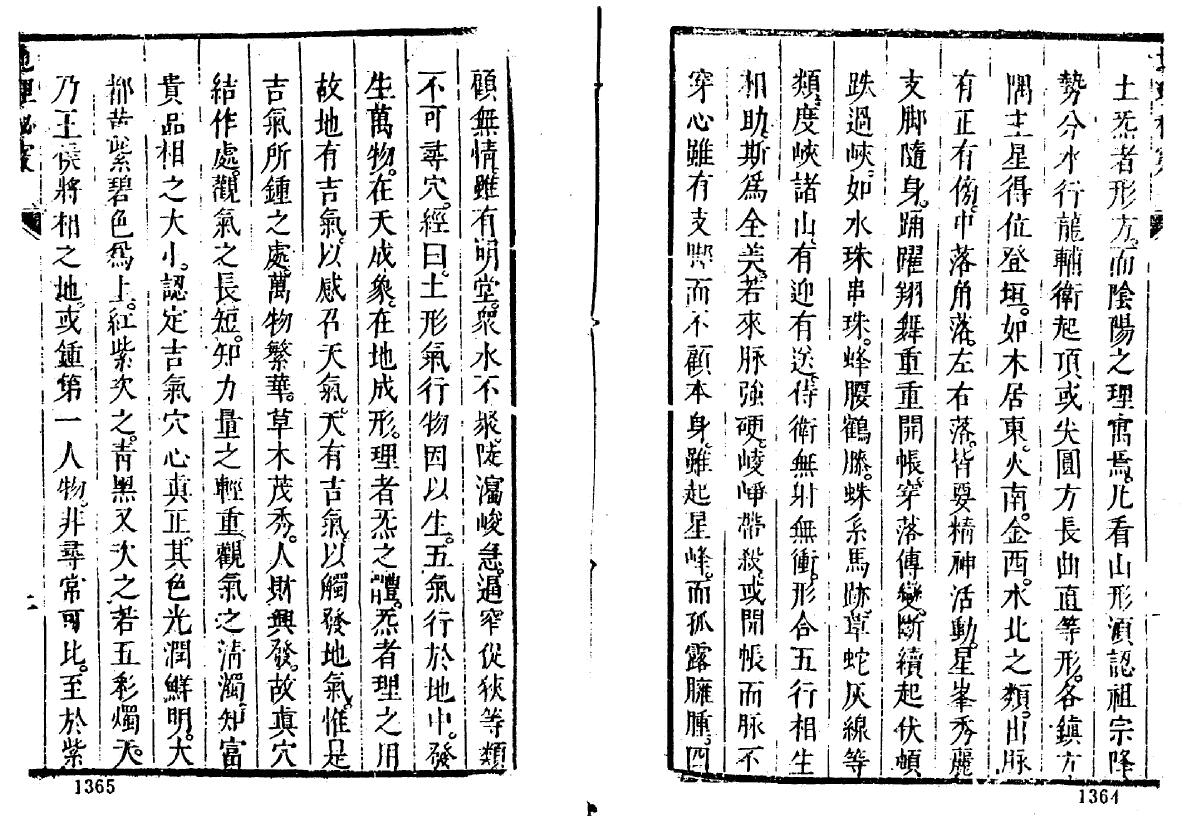 土炁者形方。而陰陽之理寓焉。凡看山形。須認祖宗降
勢。分水行龍。輔衛起頂。或尖圓方長曲直等形。各鎮方
隅。主星得位登垣。如木居東。火南。金西。水北之類。出脉
有正有傍。中落角落。左右落。皆要精神活動。星峯秀麗
支脚隨身。踊躍翔舞。重重開帳。穿落傳變。斷續起伏。頓
跌過峽。如水珠串珠。蜂腰鶴膝。蛛系馬跡。草蛇灰線等
類。度峽諸山。有迎有送。侍衛無射無衝。形合五行相生
相助。斯爲全美。若來脉強硬。崚崢帶殺。或開帳而脉不
穿心。雖有支脚。而不顧本身。雖起星峰。而孤露臃腫。四
1364
顧無情。雖有明堂。衆水不聚。陡瀉峻急。逼窄促狹等類
不可尋穴。經曰。土形氣行。物因以生。五氣行於地中。發
生萬物。在天成象。在地成形。理者炁之體。炁者理之用
故地有吉氣。以感召天氣。天有吉氣。以觸發地氣。惟是
吉氣所鍾之處。萬物繁華。草木茂秀。人財興發。故眞穴
結作處。觀氣之長短。知力量之輕重。觀氣之淸濁。知富
貴品相之大小。認定吉氣穴心眞正。其色光潤鮮明。大
都黃紫碧色爲上。紅紫次之。靑黑又次之。若五彩燭天。
乃王侯將相之地。或鍾第一人物。非尋常可比。至於紫
地理秘竅
二
1365